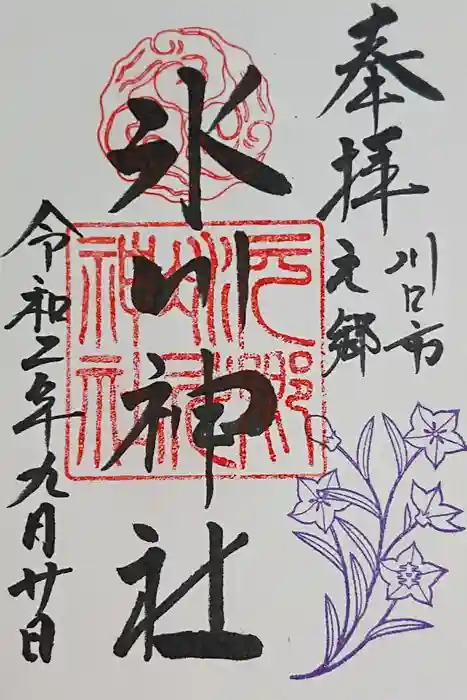 奉拝
川口市
元郷
氷川神社
令和二年九月廿日
元郷氷川神社